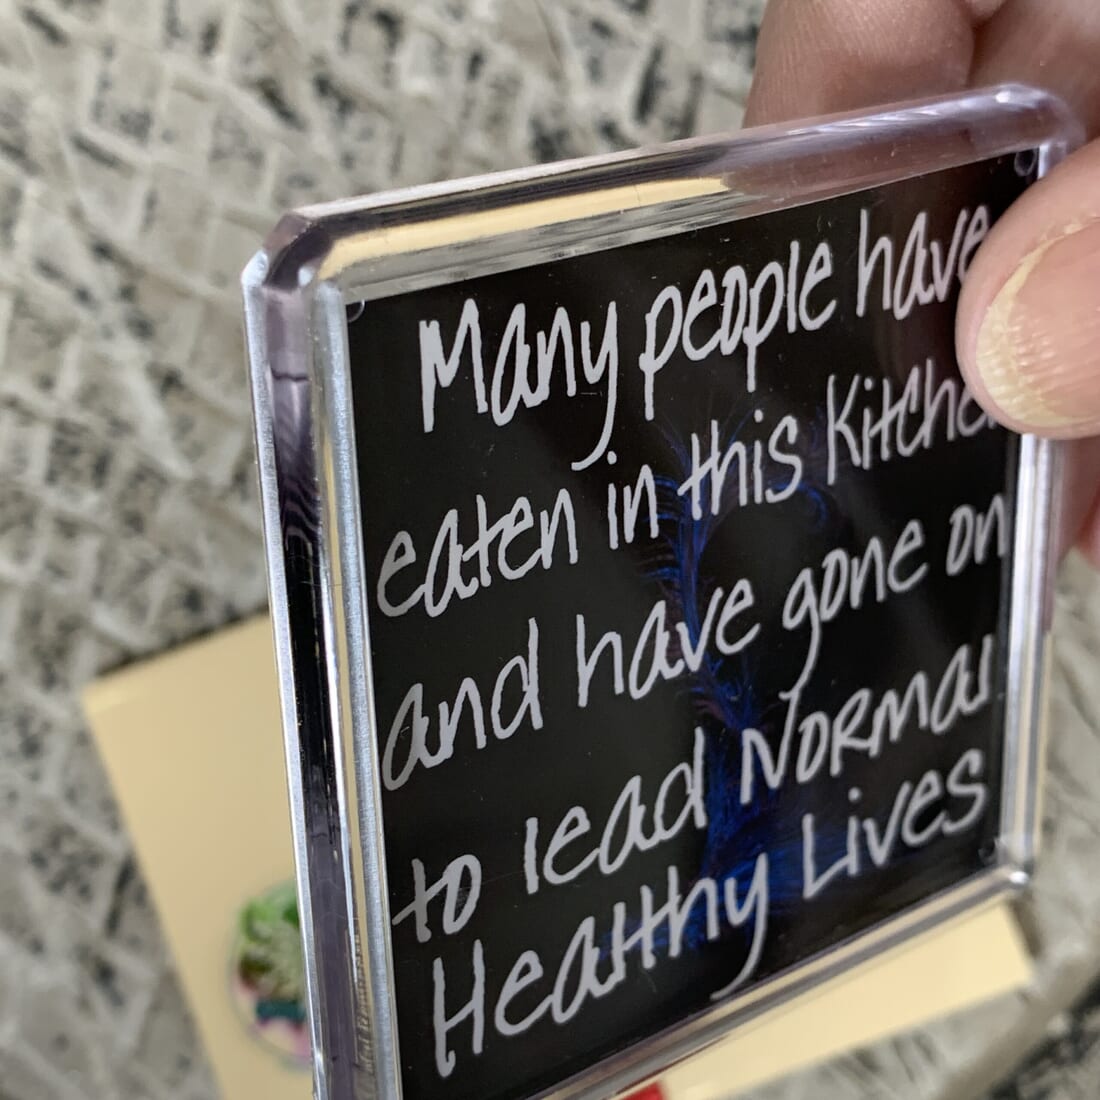 Many people have
eaten in this Kitchen
and have gone on
to lead Normal
Healthy Lives